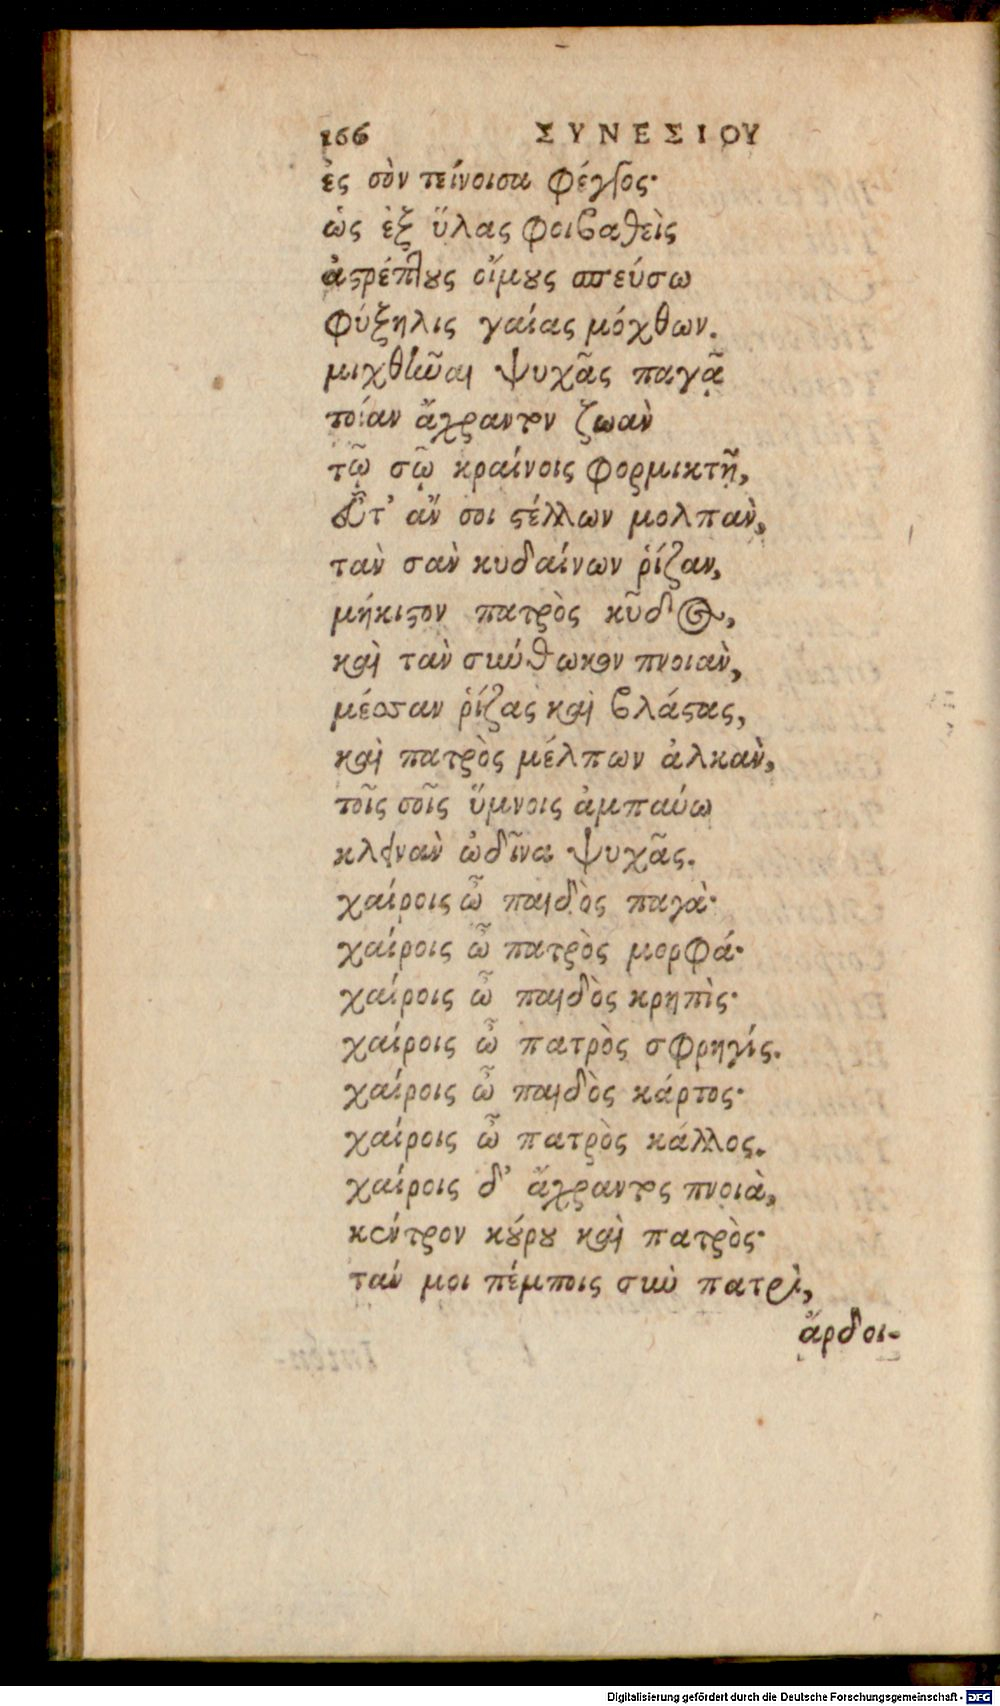 166 ΣΥΝΕΣΙΟΥ
ἐς σὸν τείνοισα φέγγος·
ὡς ἐξ ὕλας φοιβαθεὶς
ἀστρέπτους οἴμους σπεύσω
φύξηλις γαίας μόχθων.
μιχθῆναι ψυχᾶς παγᾷ
τοίαν ἄχραντον ζωὰν
τῷ σῷ κραίνοις φορμικτῇ,
Εὖτ' ἄν σοι στέλλων μολπὰν,
τὰν σὰν κυδαίνων ῥίζαν,
μήκιστον πατρὸς κῦδος,
καὶ τὰν σύνθωκον πνοιὰν,
μέσσαν ῥίζας καὶ βλάστας,
καὶ πατρὸς μέλπων ἀλκὰν,
τοῖς σοῖς ὕμνοις ἀμπαύω
κλεινὰν ὠδῖνα ψυχᾶς.
χαίροις ὦ παιδὸς παγὰ·
χαίροις ὦ πατρὸς μορφά·
χαίροις ὦ παιδὸς κρηπὶς·
χαίροις ὦ πατρὸς σφρηγίς.
χαίροις ὦ παιδὸς κάρτος·
χαίροις ὦ πατρὸς κάλλος.
χαίροις δ' ἄχραντος πνοιὰ,
κέντρον κούρου καὶ πατρὸς·
τάν μοι πέμποις σὺν πατρὶ,
ἄρδοι-
Digitalisierung gefördert durch die Deutsche Forschungsgemeinschaft · DFG